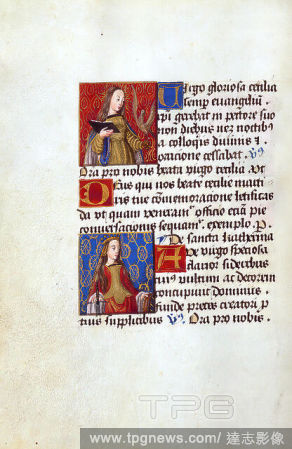 Virgo gloriosa cecilia
semp evangeliū
xpi gerebat in pectore suo
non diebus neq noctibus
a colloquis divinis &
oracione cessabat v̄s
Ora pro nobis beata virgo cecilia vt
Deus qui nos beate cecilie marti
ris tue cōmemoracione letificas
da vt quam veneramr officio etiā pie
conversacionis sequamr exemplo. P.
De sancta katherina
Ave virgo speciosa
clarior sideribus
cuius vultum ac decorem
concupivit dominus
funde preces creatori p
tuis supplicibus v̄s Ora pro nobis.
TPG
www.tpgnews.com / 達志影像